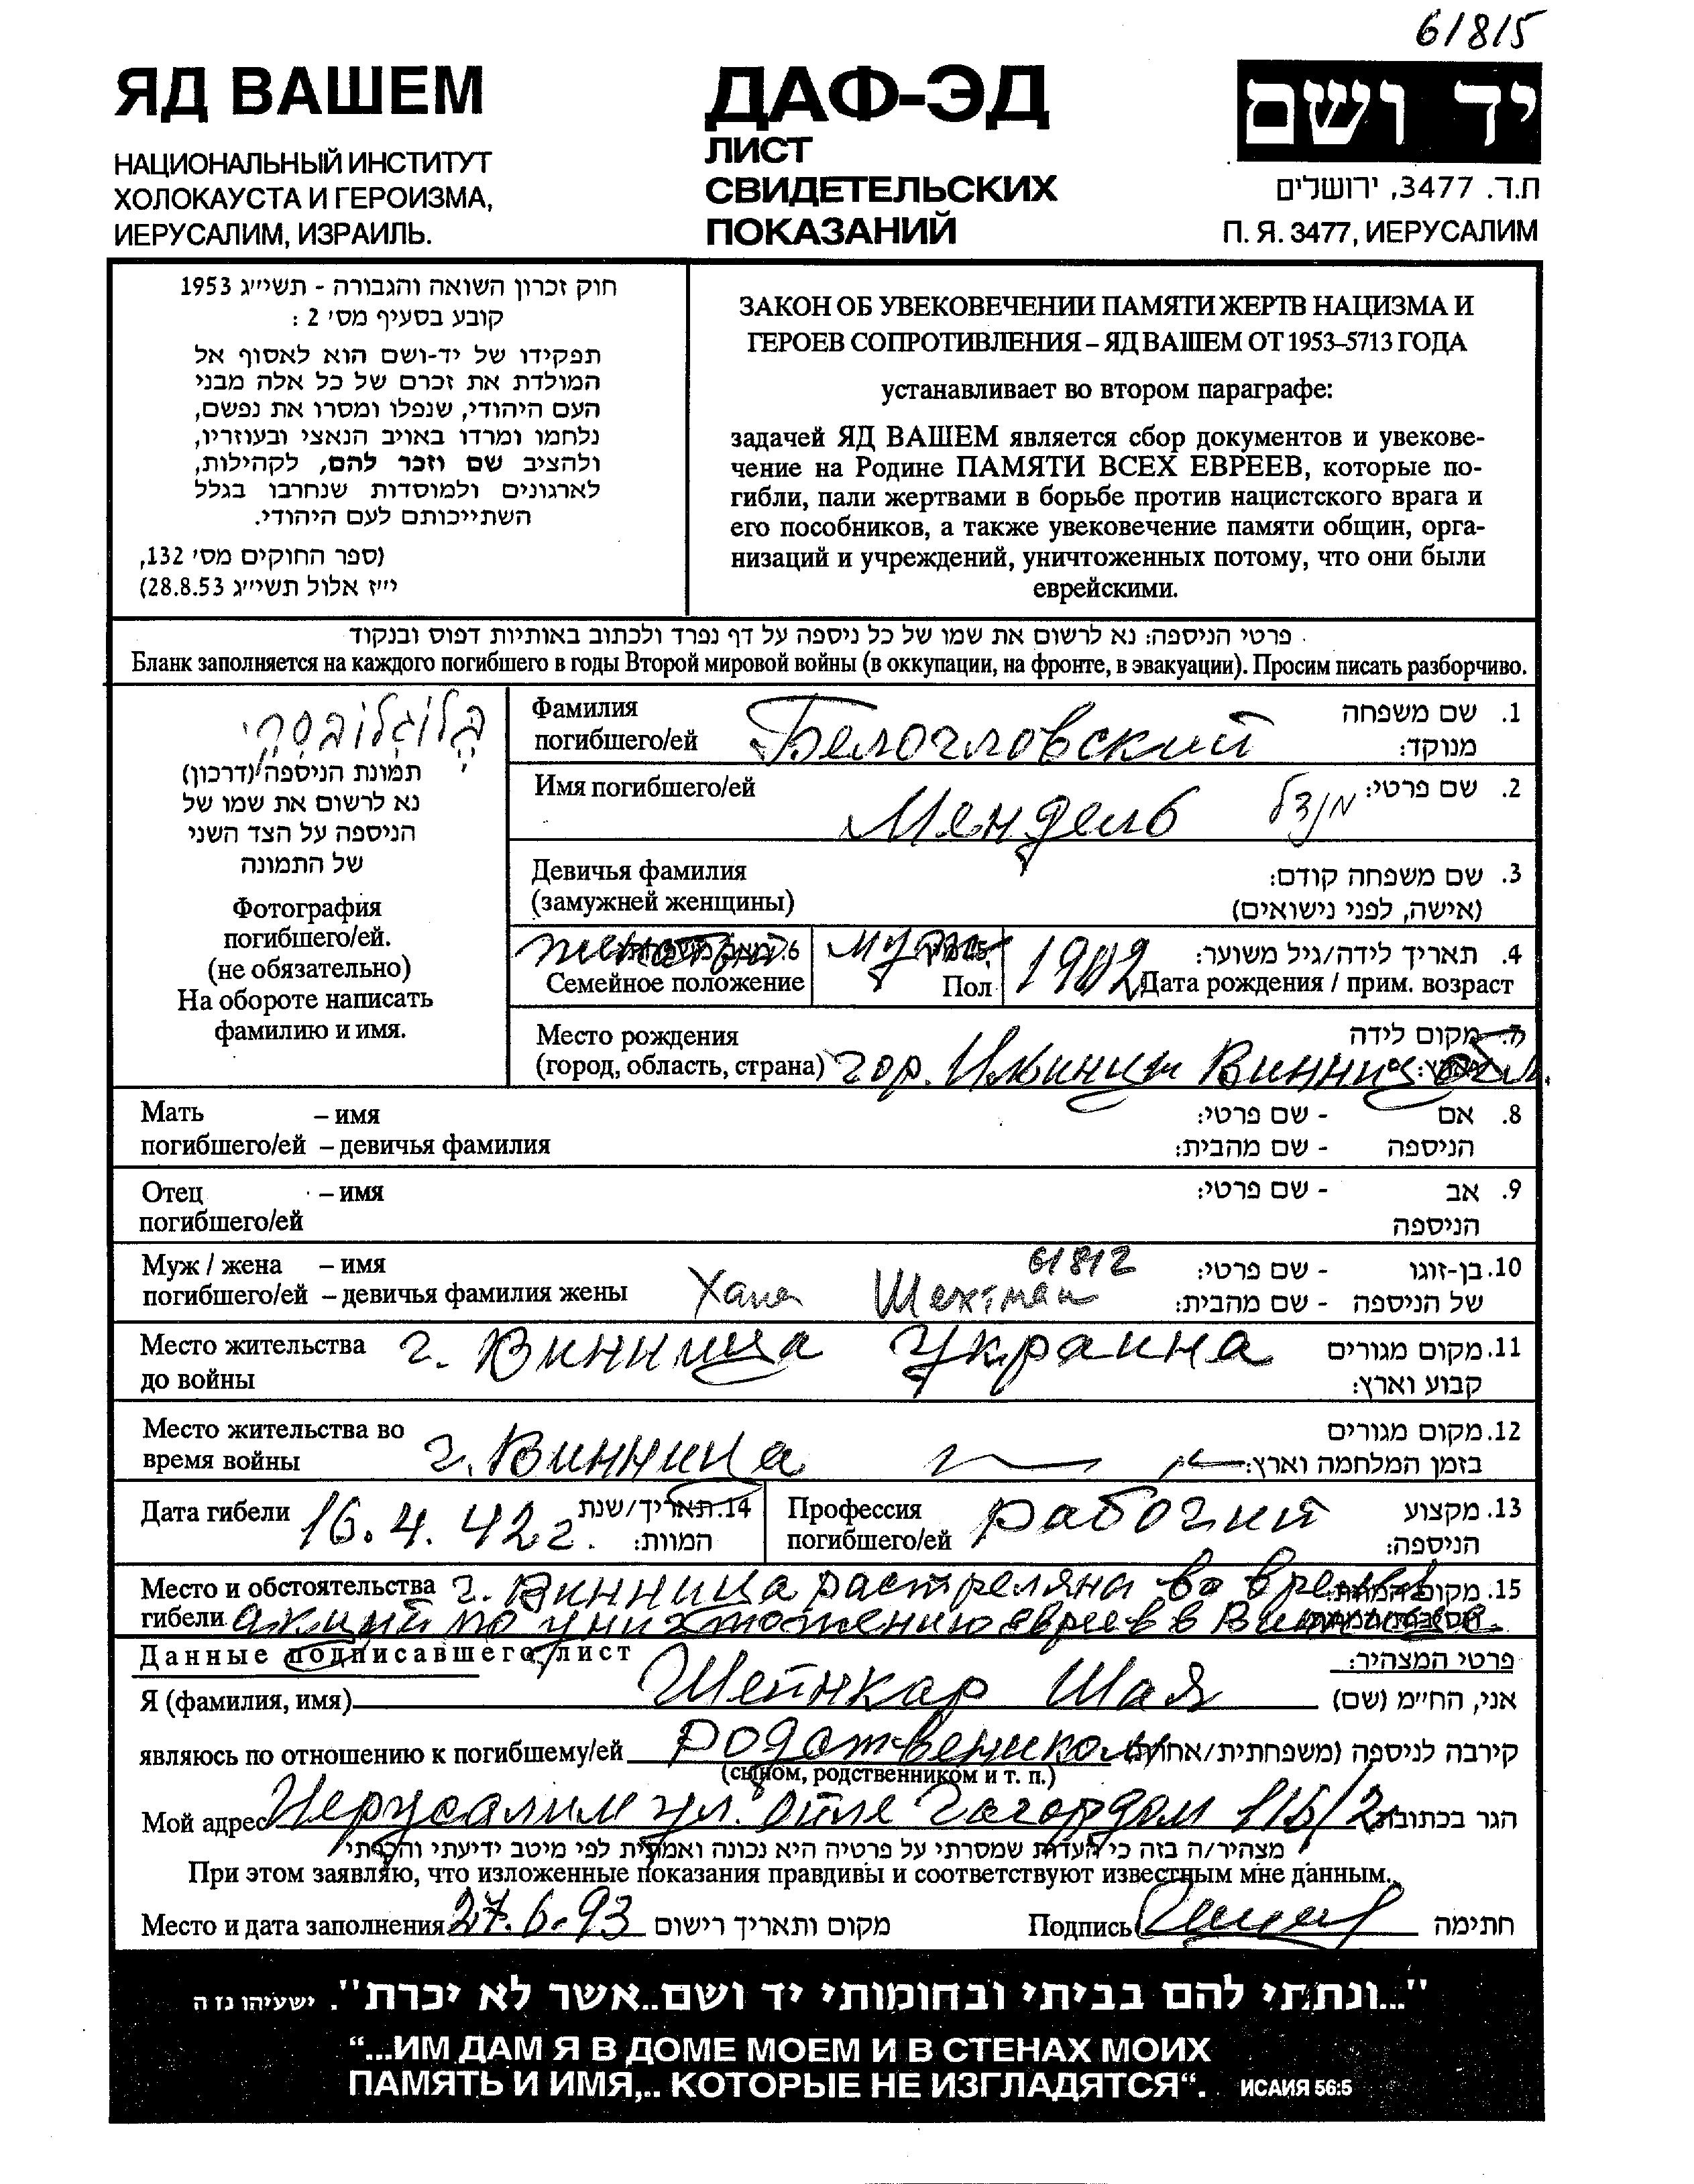 61815
ЯД ВАШЕМ
НАЦИОНАЛЬНЫЙ ИНСТИТУТ
ХОЛОКАУСТА И ГЕРОИЗМА,
ИЕРУСАЛИМ, ИЗРАИЛЬ.
ДАФ-ЭД
ЛИСТ
СВИДЕТЕЛЬСКИХ
ПОКАЗАНИЙ
יד ושם
ת.ד. 3477, ירושלים
П. Я. 3477, ИЕРУСАЛИМ
חוק זכרון השואה והגבורה - תשי״ג 1953
קובע בסעיף מס׳ 2 :
תפקידו של יד-ושם הוא לאסוף אל
המולדת את זכרם של כל אלה מבני
העם היהודי, שנפלו ומסרו את נפשם,
נלחמו ומרדו באויב הנאצי ובעוזריו,
ולהציב שם וזכר להם, לקהילות,
לארגונים ולמוסדות שנחרבו בגלל
השתייכותם לעם היהודי.
(ספר החוקים מס׳ 132,
י״ז אלול תשי״ג 28.8.53)
ЗАКОН ОБ УВЕКОВЕЧЕНИИ ПАМЯТИ ЖЕРТВ НАЦИЗМА И
ГЕРОЕВ СОПРОТИВЛЕНИЯ – ЯД ВАШЕМ ОТ 1953–5713 ГОДА
устанавливает во втором параграфе:
задачей ЯД ВАШЕМ является сбор документов и увекове-
чение на Родине ПАМЯТИ ВСЕХ ЕВРЕЕВ, которые по-
гибли, пали жертвами в борьбе против нацистского врага и
его пособников, а также увековечение памяти общин, орга-
низаций и учреждений, уничтоженных потому, что они были
еврейскими.
פרטי הניספה: נא לרשום את שמו של כל ניספה על דף נפרד ולכתוב באותיות דפוס ובנקוד
Бланк заполняется на каждого погибшего в годы Второй мировой войны (в оккупации, на фронте, в эвакуации). Просим писать разборчиво.
תמונת הניספה (דרכון)
נא לרשום את שמו של
הניספה על הצד השני
של התמונה
Фотография
погибшего/ей.
(не обязательно)
На обороте написать
фамилию и имя.
Фамилия 1. שם משפחה
погибшего/ей Белогловский מנוקד:
Имя погибшего/ей Мендель מנדל 2. שם פרטי:
Девичья фамилия 3. שם משפחה קודם:
(замужней женщины) (אישה, לפני נישואים)
женатый муж. 1902 4. תאריך לידה/גיל משוער:
Семейное положение Пол Дата рождения / прим. возраст
Место рождения 7. מקום לידה
(город, область, страна) гор. Ильинцы Винниц. обл.
Мать – имя 8. אם - שם פרטי:
погибшего/ей – девичья фамилия הניספה - שם מהבית:
Отец – имя 9. אב - שם פרטי:
погибшего/ей הניספה
Муж / жена – имя 61812 10. בן-זוגו - שם פרטי:
погибшего/ей – девичья фамилия жены Хана Шехтман של הניספה - שם מהבית:
Место жительства г. Винница Украина 11. מקום מגורים
до войны קבוע וארץ:
Место жительства во 12. מקום מגורים
время войны г. Винница בזמן המלחמה וארץ:
Дата гибели 16.4.42 г. 14. תאריך/שנת
המוות:
Профессия 13. מקצוע
погибшего/ей рабочий הניספה:
Место и обстоятельства г. Винница растреляны во время 15.
гибели акций по уничтожению евреев в Виннице.
Данные подписавшего лист פרטי המצהיר:
Я (фамилия, имя) Шейнкар Шая אני, הח״מ (שם)
являюсь по отношению к погибшему/ей родствеником קירבה לניספה (משפחתית/אחרת)
(сыном, родственником и т. п.)
Мой адрес Иерусалим ул. 116/2 הגר בכתובת
מצהיר/ה בזה כי העדות שמסרתי על פרטיה היא נכונה ואמתית לפי מיטב ידיעתי והכרתי
При этом заявляю, что изложенные показания правдивы и соответствуют известным мне данным.
Место и дата заполнения 27.6.93 מקום ותאריך רישום Подпись חתימה
"...ונתתי להם בביתי ובחומותי יד ושם..אשר לא יכרת". ישעיהו נז ה
“...ИМ ДАМ Я В ДОМЕ МОЕМ И В СТЕНАХ МОИХ
ПАМЯТЬ И ИМЯ,.. КОТОРЫЕ НЕ ИЗГЛАДЯТСЯ“. ИСАИЯ 56:5